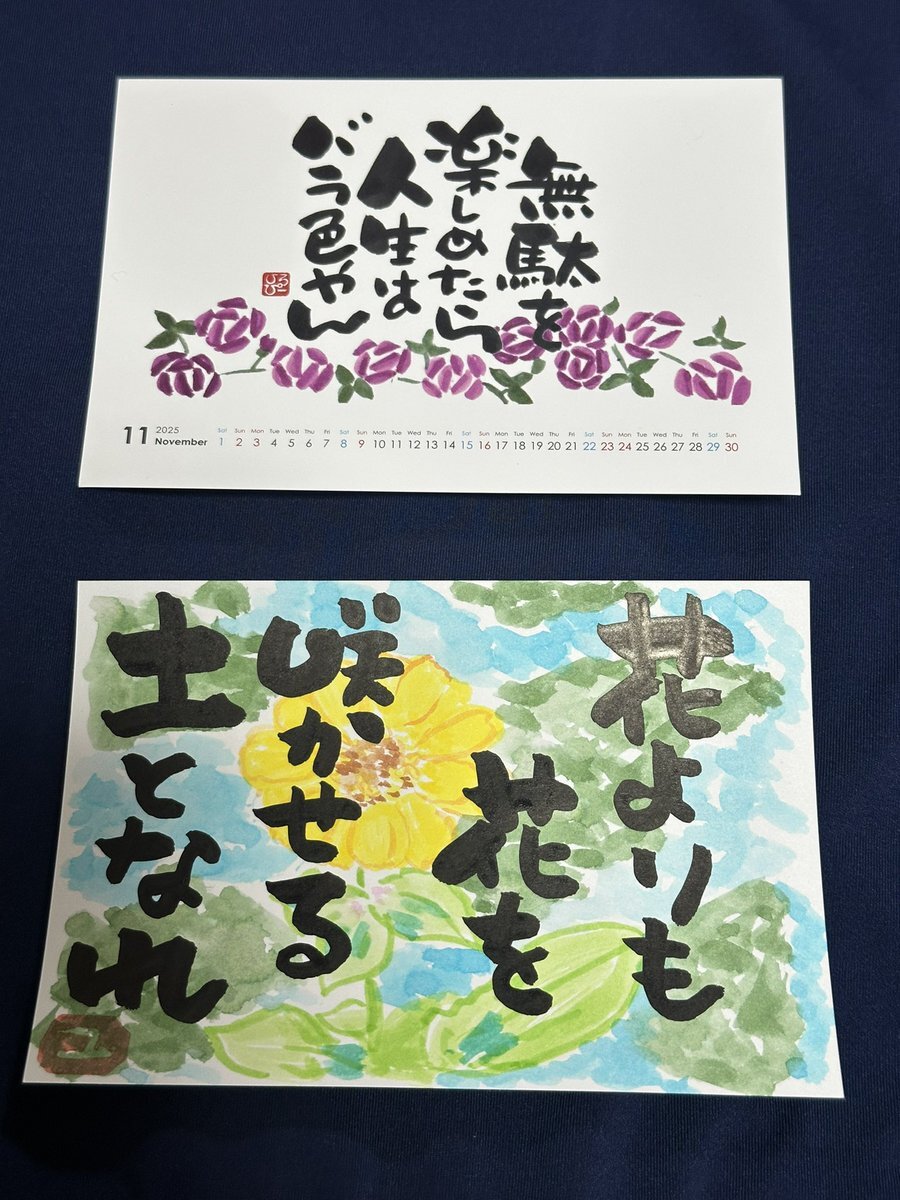 無駄を
楽しめたら
人生は
バラ色やん
11
2025
November
Sat Sun Mon Tue Wed Thu Fri Sat Sun Mon Tue Wed Thu Fri Sat Sun Mon Tue Wed Thu Fri Sat Sun Mon Tue Wed Thu Fri Sat Sun
1 2 3 4 5 6 7 8 9 10 11 12 13 14 15 16 17 18 19 20 21 22 23 24 25 26 27 28 29 30
花よりも
花を
咲かせる
土となれ